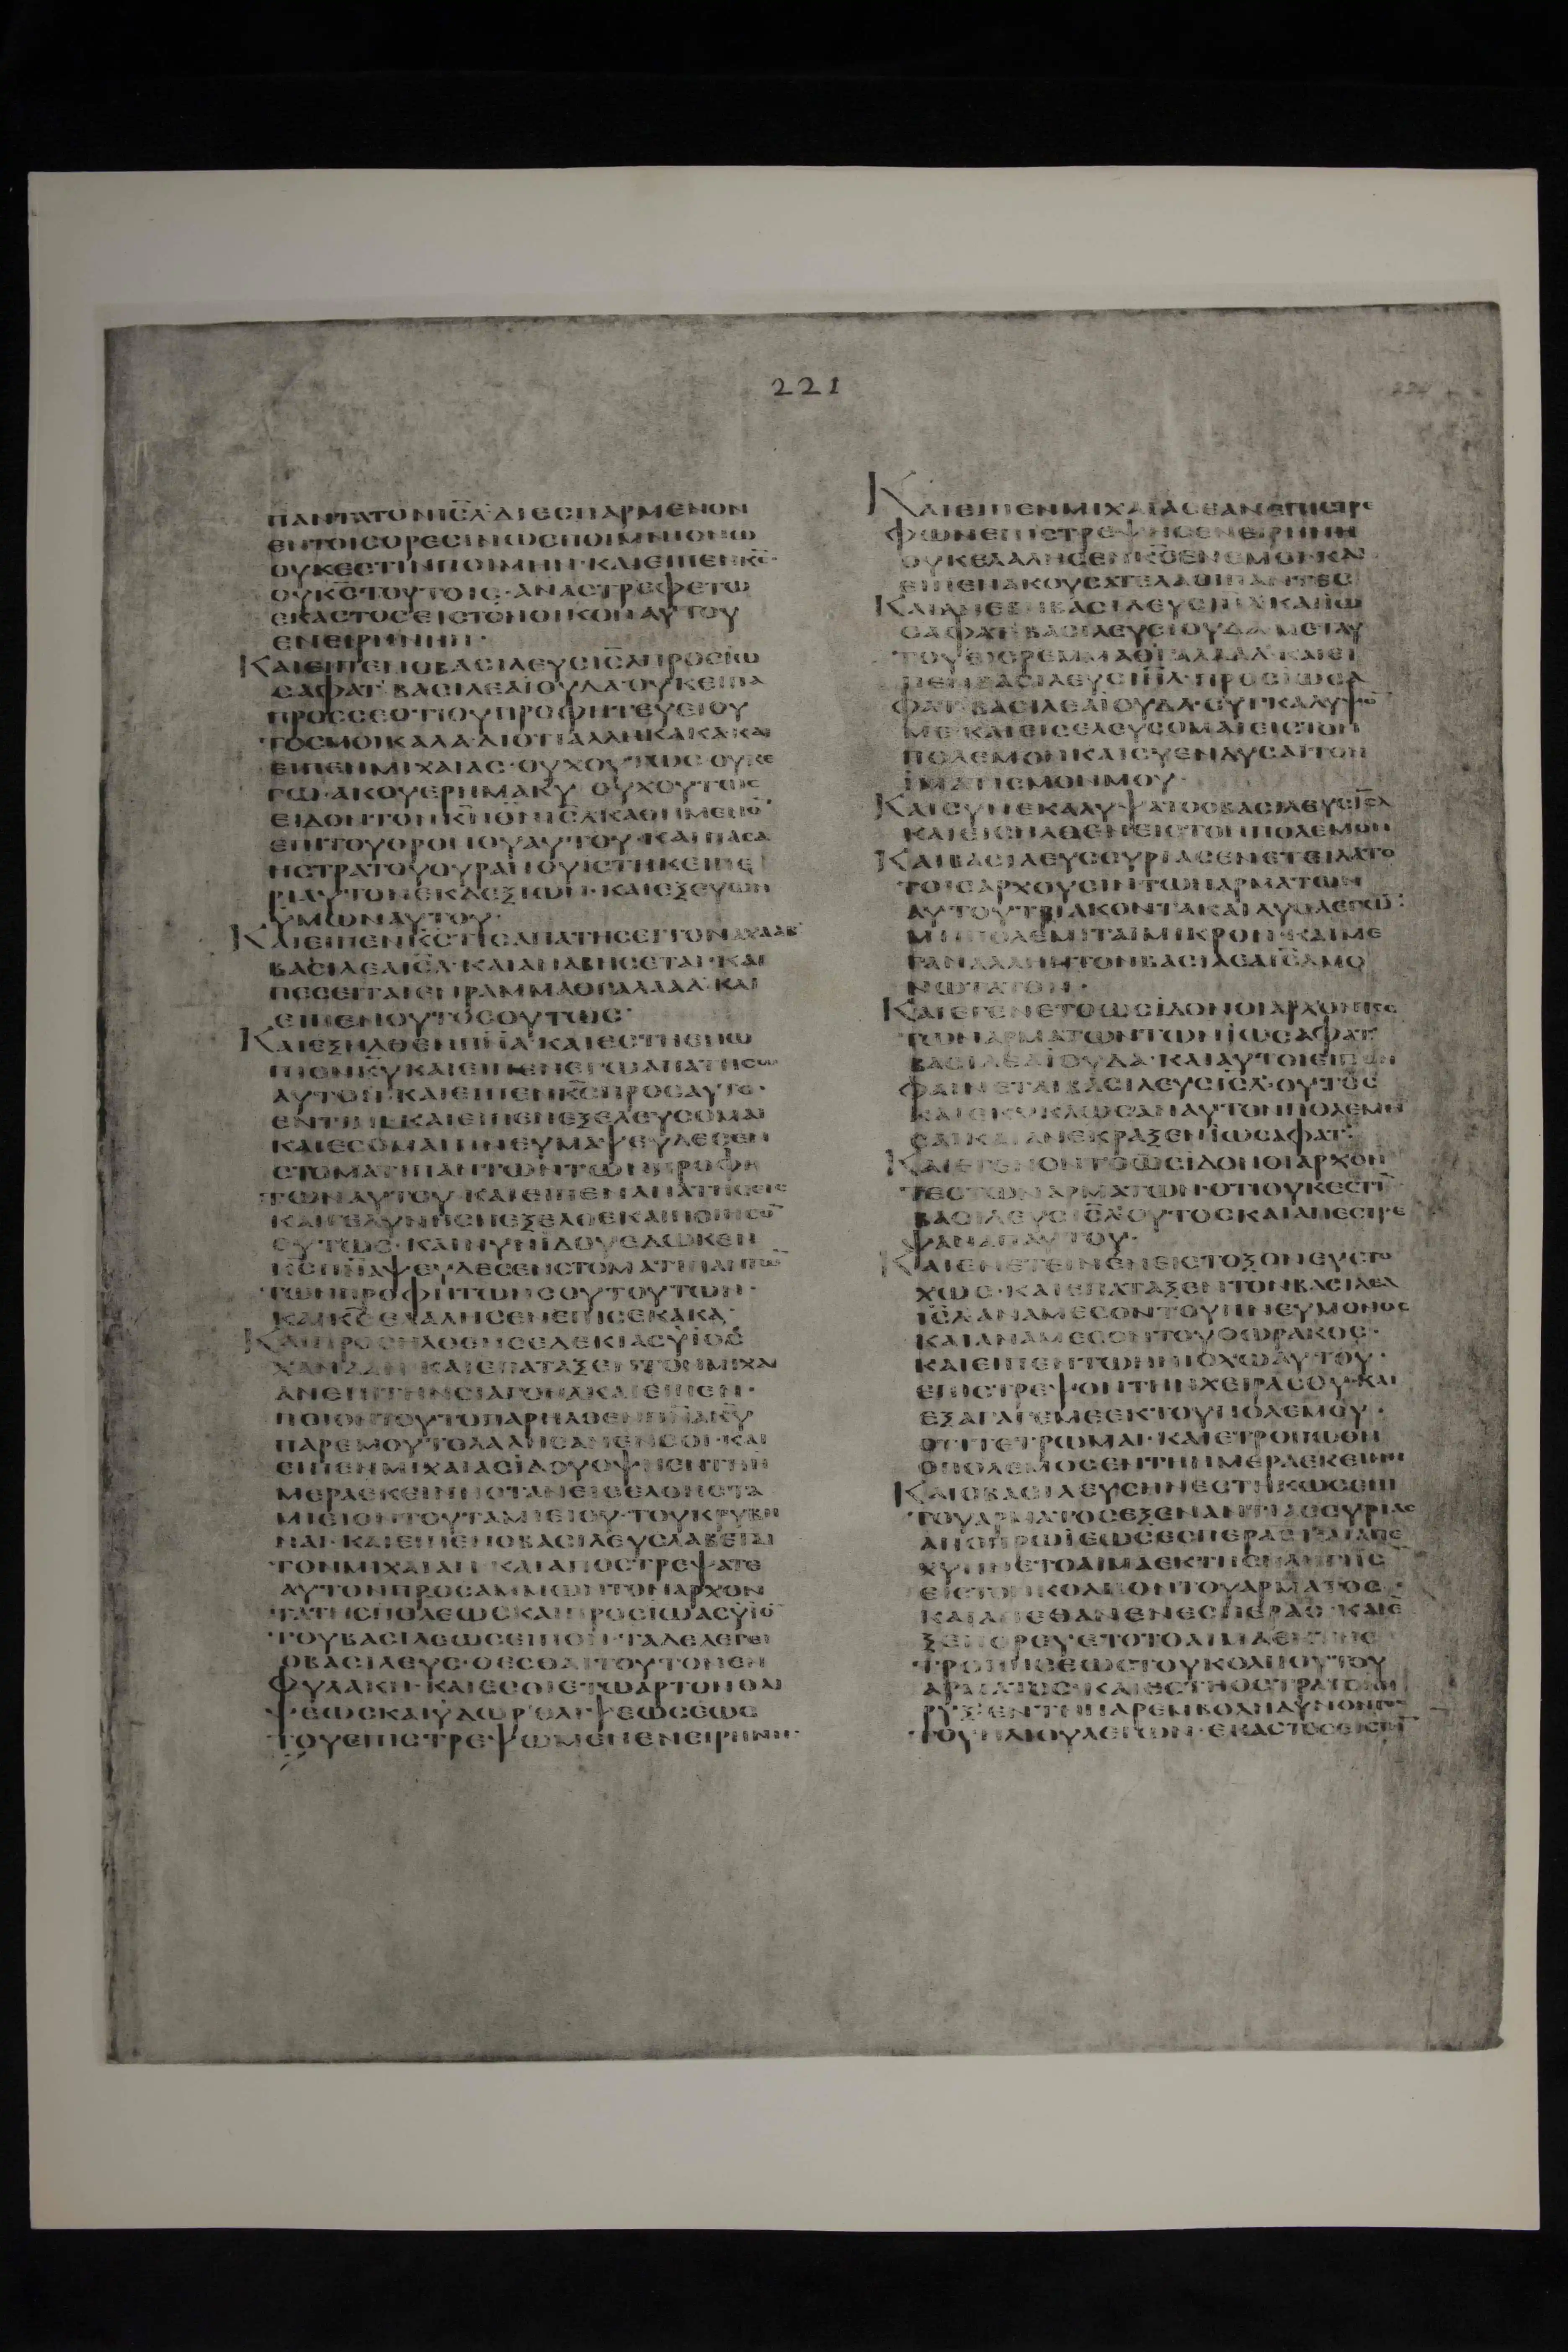 221
ΠΑΝΤΑΤΟΝΙΣ̅Λ̅ΔΙΕΣΠΑΡΜΕΝΟΝ
ΕΝΤΟΙΣΟΡΕΣΙΝΩΣΠΟΙΜΝΙΟΝΩ
ΟΥΚΕΣΤΙΝΠΟΙΜΗΝ·ΚΑΙΕΙΠΕΝΚ̅Σ̅·
ΟΥΚ̅Σ̅ΤΟΥΤΟΙΣ·ΑΝΑΣΤΡΕΦΕΤΩ
ΕΚΑΣΤΟΣΕΙΣΤΟΝΟΙΚΟΝΑΥΤΟΥ
ΕΝΕΙΡΗΝΗ·
ΚΑΙΕΙΠΕΝΟΒΑΣΙΛΕΥΣΙΣ̅Λ̅ΠΡΟΣΪΩ
ΣΑΦΑΤ᾽ΒΑΣΙΛΕΑΪΟΥΔΑ·ΟΥΚΕΙΠΑ
ΠΡΟΣΣΕΟΤΙΟΥΠΡΟΦΗΤΕΥΕΙΟΥ
ΤΟΣΜΟΙΚΑΛΑ·ΔΙΟΤΙΑΛΛΗΚΑΚΑ·ΚΑΙ
ΕΙΠΕΝΜΙΧΑΙΑΣ·ΟΥΧΟΥΤΩΣ·ΟΥΚΕ
ΓΩ·ΑΚΟΥΕΡΗΜΑΚ̅Υ̅ΟΥΧΟΥΤΩΣ
ΕΙΔΟΝΤΟΝΚ̅Ν̅Θ̅Ν̅ΙΣ̅Λ̅ΚΑΘΗΜΕΝΟ̅
ΕΠΙΤΟΥΘΡΟΝΟΥΑΥΤΟΥ·ΚΑΙΠΑΣΑ
ΗΣΤΡΑΤΟΥΟΥΡΑΝΟΥΪΣΤΗΚΕΙΠΕ
ΡΙΑΥΤΟΝΕΚΔΕΞΙΩΝ·ΚΑΙΕΞΕΥΩΝ
ΥΜΩΝΑΥΤΟΥ·
ΚΑΙΕΙΠΕΝΚ̅Σ̅ΤΙΣΑΠΑΤΗΣΕΙΤΟΝΑΧΑΑΒ
ΒΑΣΙΛΕΑΙΣ̅Λ̅·ΚΑΙΑΝΑΒΗΣΕΤΑΙ·ΚΑΙ
ΠΕΣΕΙΤΑΙΕΝΡΑΜΜΑΘΓΑΛΑΑΔ·ΚΑΙ
ΕΙΠΕΝΟΥΤΟΣΟΥΤΩΣ·
ΚΑΙΕΞΗΛΘΕΝΠ̅Ν̅Α̅·ΚΑΙΕΣΤΗΕΝΩ
ΠΙΟΝΚ̅Υ̅ΚΑΙΕΙΠΕΝΕΓΩΑΠΑΤΗΣΩ
ΑΥΤΟΝ·ΚΑΙΕΙΠΕΝΚ̅Σ̅ΠΡΟΣΑΥΤΟ·
ΕΝΤΙΝΙ·ΚΑΙΕΙΠΕΝΕΞΕΛΕΥΣΟΜΑΙ
ΚΑΙΕΣΟΜΑΙΠΝΕΥΜΑΨΕΥΔΕΣΕΝ
ΣΤΟΜΑΤΙΠΑΝΤΩΝΤΩΝΠΡΟΦΗ
ΤΩΝΑΥΤΟΥ·ΚΑΙΕΙΠΕΝΑΠΑΤΗΣΕΙΣ
ΚΑΙΓΕΔΥΝΗΣΗΕΞΕΛΘΕΚΑΙΠΟΙΗΣΟ̅
ΟΥΤΩΣ·ΚΑΙΝΥΝΪΔΟΥΕΔΩΚΕΝ
Κ̅Σ̅Π̅Ν̅Α̅ΨΕΥΔΕΣΕΝΣΤΟΜΑΤΙΠΑΝΤΩ̅
ΤΩΝΠΡΟΦΗΤΩΝΣΟΥΤΟΥΤΩΝ·
ΚΑΙΚ̅Σ̅ΕΛΑΛΗΣΕΝΕΠΙΣΕΚΑΚΑ·
ΚΑΙΠΡΟΣΗΛΘΕΝΣΕΔΕΚΙΑΣΥΪΟΣ
ΧΑΝΑΑΝ·ΚΑΙΕΠΑΤΑΞΕΝΤΟΝΜΙΧΑΙ
ΑΝΕΠΙΤΗΝΣΙΑΓΟΝΑΚΑΙΕΙΠΕΝ·
ΠΟΙΟΝΤΟΥΤΟΠΑΡΗΛΘΕΝΠ̅Ν̅Α̅Κ̅Υ̅
ΠΑΡΕΜΟΥΤΟΛΑΛΗΣΑΝΕΝΣΟΙ·ΚΑΙ
ΕΙΠΕΝΜΙΧΑΙΑΣΪΔΟΥΟΨΗΕΝΤΗΗ
ΜΕΡΑΕΚΕΙΝΗΟΤΑΝΕΙΣΕΛΘΗΣΤΑ
ΜΙΕΙΟΝΤΟΥΤΑΜΙΕΙΟΥ·ΤΟΥΚΡΥΒΗ
ΝΑΙ·ΚΑΙΕΙΠΕΝΟΒΑΣΙΛΕΥΣΛΑΒΕ
ΤΟΝΜΙΧΑΙΑΝ·ΚΑΙΑΠΟΣΤΡΕΨΑΤΕ
ΑΥΤΟΝΠΡΟΣΑΜΜΩΝΤΟΝΑΡΧΟΝ
ΤΑΤΗΣΠΟΛΕΩΣΚΑΙΠΡΟΣΪΩΑΣΥΪΟ̅
ΤΟΥΒΑΣΙΛΕΩΣΕΙΠΟΝ·ΤΑΔΕΛΕΓΕΙ
ΟΒΑΣΙΛΕΥΣ·ΘΕΣΘΑΙΤΟΥΤΟΝΕΝ
ΦΥΛΑΚΗ·ΚΑΙΕΣΘΙΕΤΩΑΡΤΟΝΘΛΙ
ΨΕΩΣΚΑΙΥΔΩΡΘΛΙΨΕΩΣΕΩΣ
ΤΟΥΕΠΙΣΤΡΕΨΩΜΕΝΕΝΕΙΡΗΝΗ·
ΚΑΙΕΙΠΕΝΜΙΧΑΪΑΣΕΑΝΕΠΙΣΤΡΕ
ΦΩΝΕΠΙΣΤΡΕΨΗΣΕΝΕΙΡΗΝΗ
ΟΥΚΕΛΑΛΗΣΕΝΚ̅Σ̅ΕΝΕΜΟΙ·ΚΑΙ
ΕΙΠΕΝΑΚΟΥΣΑΤΕΛΑΟΙΠΑΝΤΕΣ
ΚΑΙΑΝΕΒΗΒΑΣΙΛΕΥΣΙΗ̅Λ̅ΚΑΙΪΩ
ΣΑΦΑΤ᾽ΒΑΣΙΛΕΥΣΙΟΥΔΑΜΕΤΑΥ
ΤΟΥΕΙΣΡΕΜΜΑΘΓΑΛΑΑΔ·ΚΑΙΕΙ
ΠΕΝΒΑΣΙΛΕΥΣΙΗ̅Λ̅·ΠΡΟΣΪΩΣΑ
ΦΑΤ᾽ΒΑΣΙΛΕΑΪΟΥΔΑ·ΣΥΓΚΑΛΥΨΟ̅
ΜΕ·ΚΑΙΕΙΣΕΛΕΥΣΟΜΑΙΕΙΣΤΟΝ
ΠΟΛΕΜΟΝΚΑΙΣΥΕΝΔΥΣΑΙΤΟΝ
ΪΜΑΤΙΣΜΟΝΜΟΥ·
ΚΑΙΣΥΝΕΚΑΛΥΨΑΤΟΟΒΑΣΙΛΕΥΣΙΣ̅Λ̅
ΚΑΙΕΙΣΗΛΘΕΝΕΙΣΤΟΝΠΟΛΕΜΟΝ
ΚΑΙΒΑΣΙΛΕΥΣΣΥΡΙΑΣΕΝΕΤΕΙΛΑΤΟ
ΤΟΙΣΑΡΧΟΥΣΙΝΤΩΝΑΡΜΑΤΩΝ
ΑΥΤΟΥΤΡΙΑΚΟΝΤΑΚΑΙΔΥΟΛΕΓΩ̅·
ΜΗΠΟΛΕΜΙΤΑΙΜΙΚΡΟΝ·ΚΑΙΜΕ
ΓΑΝΑΛΛΗΤΟΝΒΑΣΙΛΕΑΙΣ̅Λ̅ΜΟ
ΝΩΤΑΤΟΝ·
ΚΑΙΕΓΕΝΕΤΟΩΣΪΔΟΝΟΙΑΡΧΟΝΤΕΣ
ΤΩΝΑΡΜΑΤΩΝΤΩΝΪΩΣΑΦΑΤ᾽
ΒΑΣΙΛΕΑΪΟΥΔΑ·ΚΑΙΑΥΤΟΙΕΙΠΟΝ
ΦΑΙΝΕΤΑΙΒΑΣΙΛΕΥΣΙΣ̅Λ̅·ΟΥΤΟΣ
ΚΑΙΕΚΥΚΛΩΣΑΝΑΥΤΟΝΠΟΛΕΜΗ
ΣΑΙΚΑΙΑΝΕΚΡΑΞΕΝΪΩΣΑΦΑΤ᾽
ΚΑΙΕΓΕΝΟΝΤΟΩΣΪΔΟΝΟΙΑΡΧΟΝ
ΤΕΣΤΩΝΑΡΜΑΤΩΝ·ΟΤΙΟΥΚΕΣΤΙ̅
ΒΑΣΙΛΕΥΣΙΣ̅Λ̅ΟΥΤΟΣΚΑΙΑΠΕΣΤΡΕ
ΨΑΝΑΠΑΥΤΟΥ·
ΚΑΙΕΝΕΤΕΙΝΕΝΕΙΣΤΟΞΟΝΕΥΣΤΟ
ΧΩΣ·ΚΑΙΕΠΑΤΑΞΕΝΤΟΝΒΑΣΙΛΕΑ
ΙΣ̅Λ̅ΑΝΑΜΕΣΟΝΤΟΥΠΝΕΥΜΟΝΟΣ
ΚΑΙΑΝΑΜΕΣΟΝΤΟΥΘΩΡΑΚΟΣ·
ΚΑΙΕΙΠΕΝΤΩΗΝΙΟΧΩΑΥΤΟΥ·
ΕΠΙΣΤΡΕΨΟΝΤΗΝΧΕΙΡΑΣΟΥ·ΚΑΙ
ΕΞΑΓΑΓΕΜΕΕΚΤΟΥΠΟΛΕΜΟΥ·
ΟΤΙΤΕΤΡΩΜΑΙ·ΚΑΙΕΤΡΟΠΩΘΗ
ΟΠΟΛΕΜΟΣΕΝΤΗΗΜΕΡΑΕΚΕΙΝΗ
ΚΑΙΟΒΑΣΙΛΕΥΣΗΝΕΣΤΗΚΩΣΕΠΙ
ΤΟΥΑΡΜΑΤΟΣΕΞΕΝΑΝΤΙΑΣΣΥΡΙΑΣ
ΑΠΟΠΡΩΪΕΩΣΕΣΠΕΡΑΣ
ΧΥΝΝΕΤΟΑΙΜΑΕΚΤΗΣΠΛΗΓΗΣ
ΕΙΣΤΟΝΚΟΛΠΟΝΤΟΥΑΡΜΑΤΟΣ·
ΚΑΙΑΠΕΘΑΝΕΝΕΣΠΕΡΑΣ·ΚΑΙΕ
ΞΕΠΟΡΕΥΕΤΟΤΟΑΙΜΑΕΚΤΗΣ
ΤΡΟΠΗΣΕΩΣΤΟΥΚΟΛΠΟΥΤΟΥ
ΑΡΜΑΤΟΣ·ΚΑΙΕΣΤΗΟΣΤΡΑΤΟΚΗ
ΡΥΞΕΝΤΗΠΑΡΕΜΒΟΛΗΔΥΝΟΝΤΟΣ
ΤΟΥΗΛΙΟΥΛΕΓΩΝ·ΕΚΑΣΤΟΣΕΙΣΤΗ̅